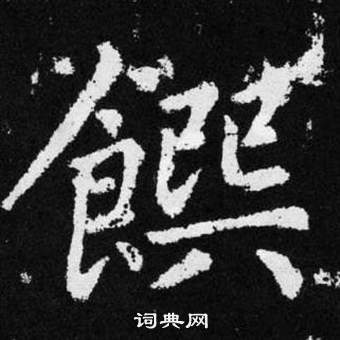 饌
词典网